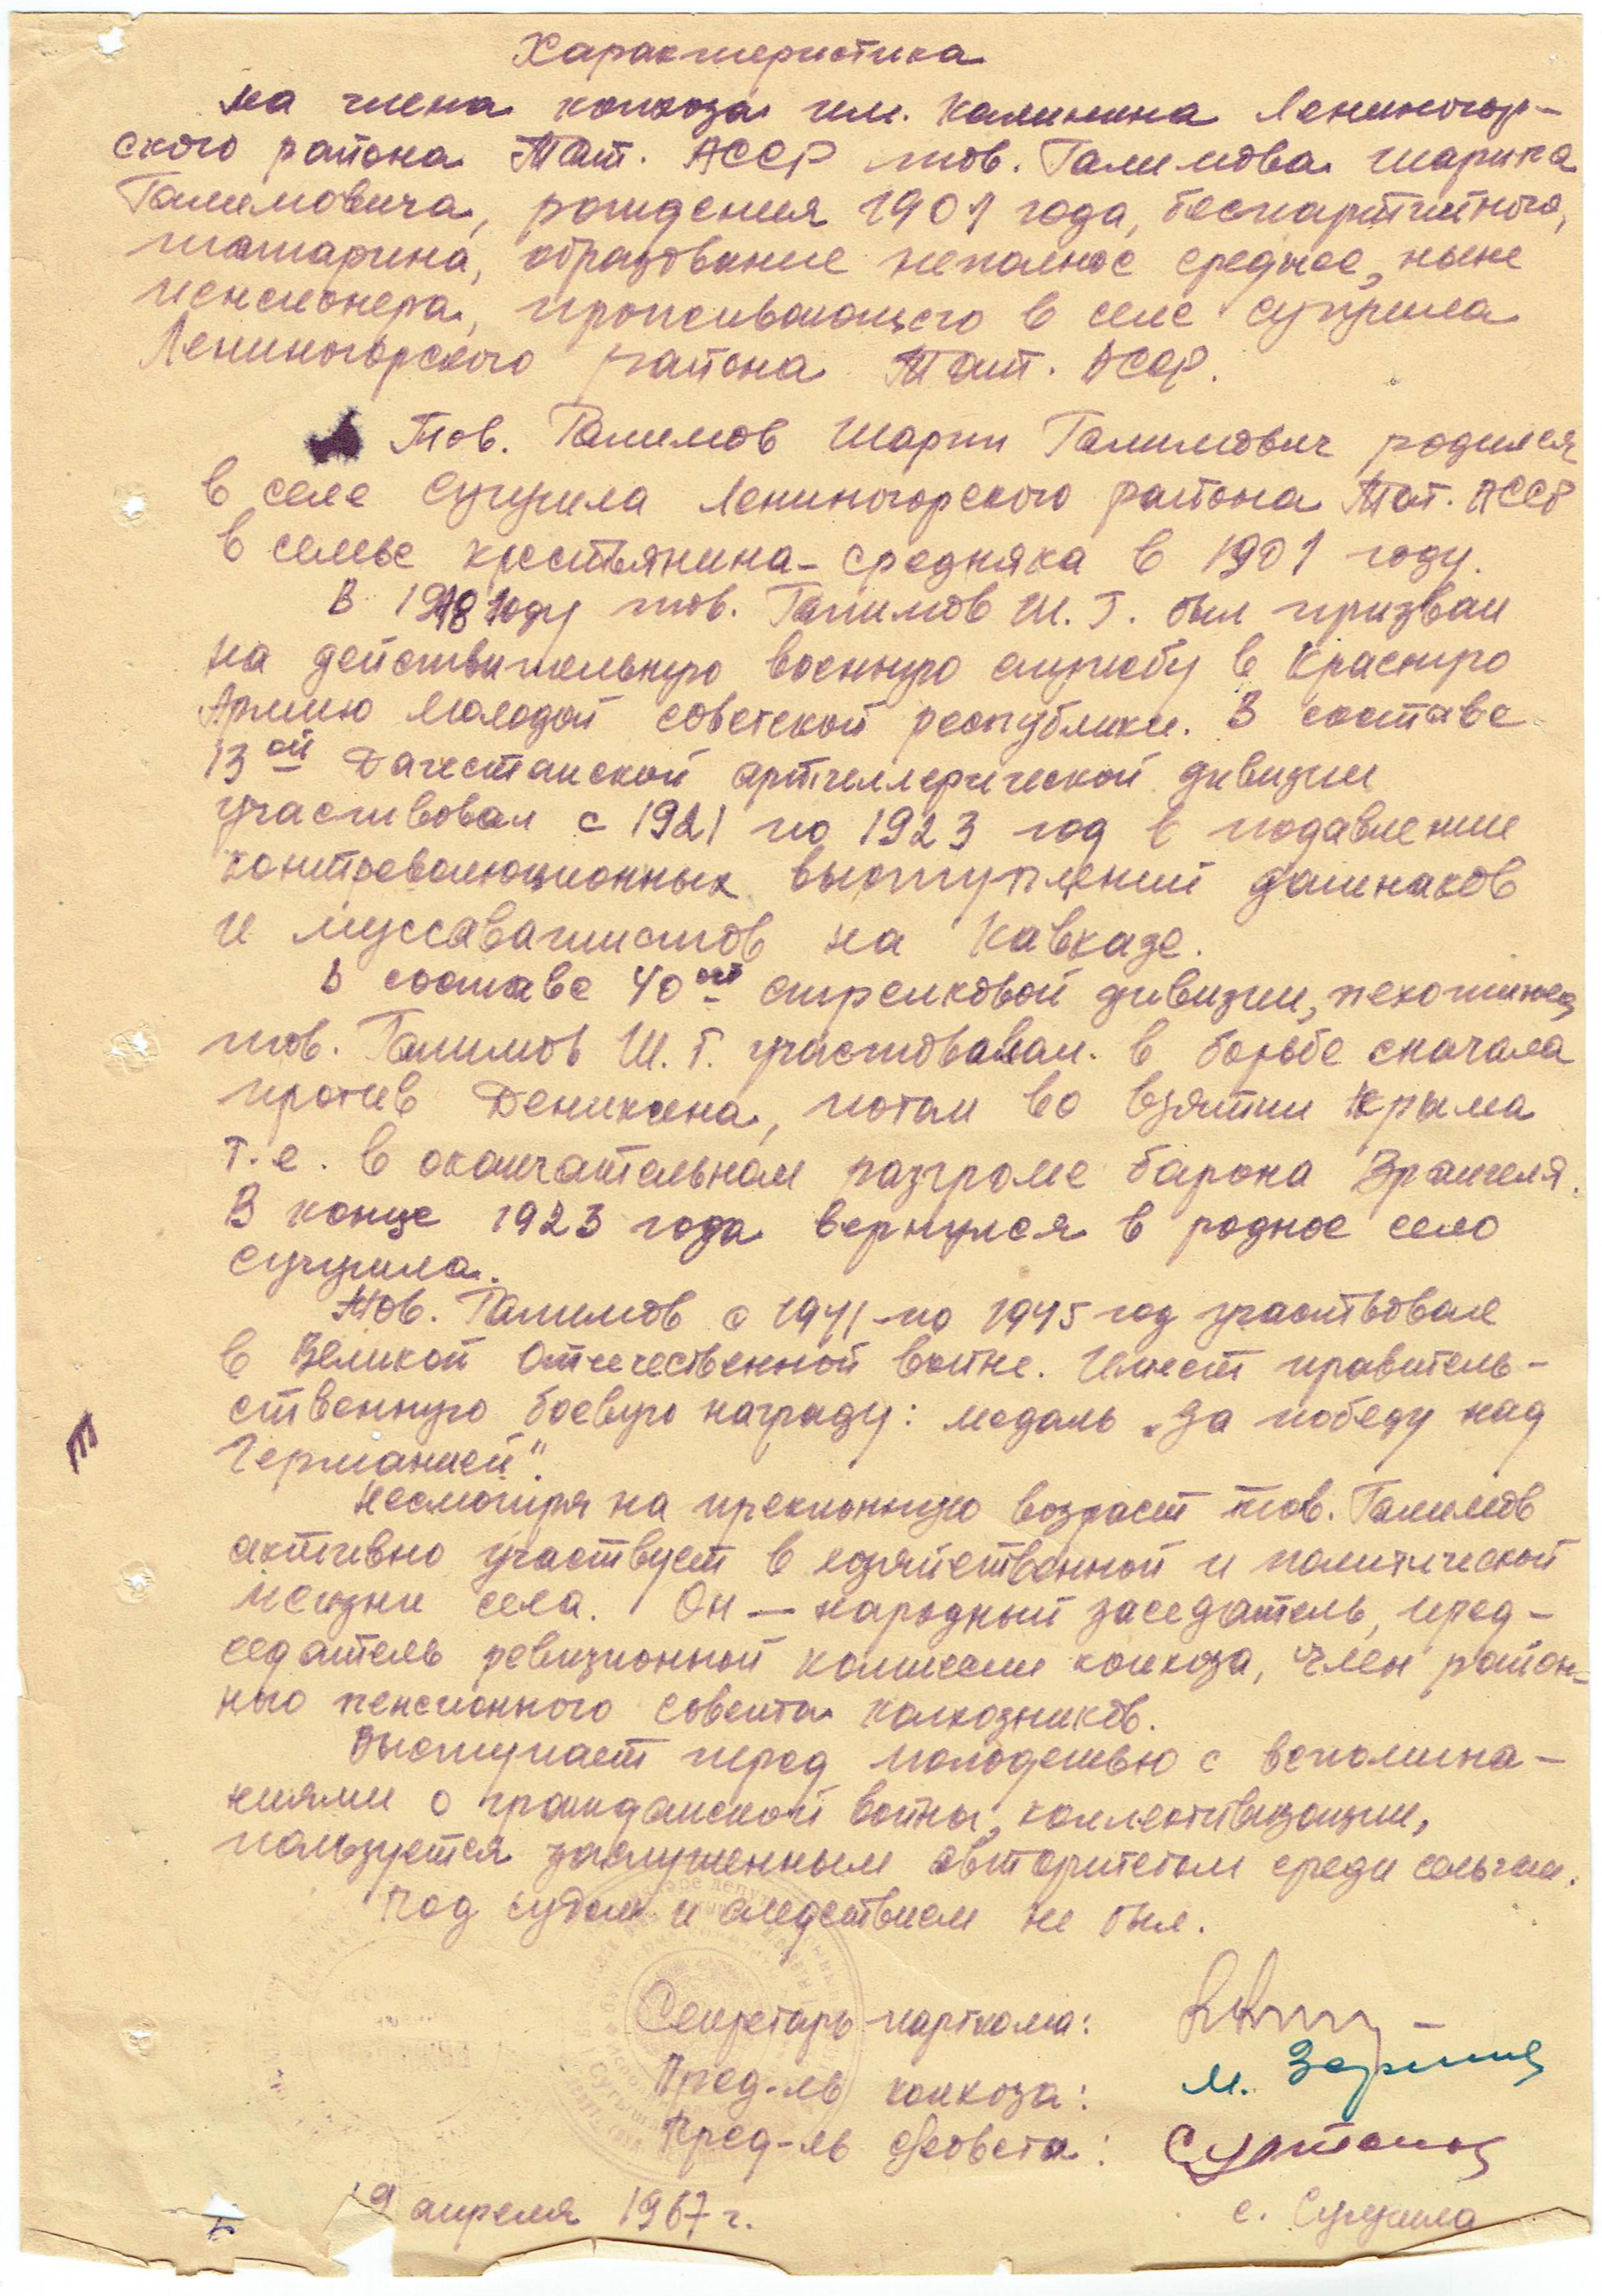 Характеристика
на члена колхоза им. Калинина Лениногор-
ского района Тат. АССР тов. Галимова Шарипа
Галимовича, рождения 1901 года, беспартийного,
татарина, образование неполное среднее, ныне
пенсионера, проживающего в селе Сугушла
Лениногорского района Тат. АССР.
Тов. Галимов Шарип Галимович родился
в селе Сугушла Лениногорского района Тат. АССР
в семье крестьянина-средняка в 1901 году.
В 1918 году тов. Галимов Ш. Г. был призван
на действительную военную службу в Красную
Армию молодой советской республики. В составе
13ой Дагестанской артиллерической дивизии
участвовал с 1921 по 1923 год в подавление
контреволюционных выступлений дашнаков
и муссаватистов на Кавказе.
В составе 40ой стрелковой дивизии, пехотинец
тов. Галимов Ш. Г. участвовал в борьбе сначала
против Деникина, потом во взятии Крыма
т.е. в окончательном разгроме барона Врангеля.
В конце 1923 года вернулся в родное село
Сугушла.
Тов. Галимов с 1941 по 1945 год участвовал
в Великой Отечественной войне. Имеет правитель-
ственную боевую награду: медаль „За победу над
Германией".
Несмотря на преклонную возраст тов. Галимов
активно участвует в хозяйственной и политической
жизни села. Он — народный заседатель, пред-
седатель ревизионной комиссии колхоза, член район-
ного пенсионного совета колхозников.
Выступает перед молодежью с вспомина-
ниями о гражданской войны, коллективизации,
пользуется заслуженным авторитетом среди сельчан.
Под судом и следствием не был.
Секретарь парткома:
Пред-ль колхоза: М. Зарипов
Пред-ль с/совета: Султанов
19 апреля 1967 г. с. Сугушла